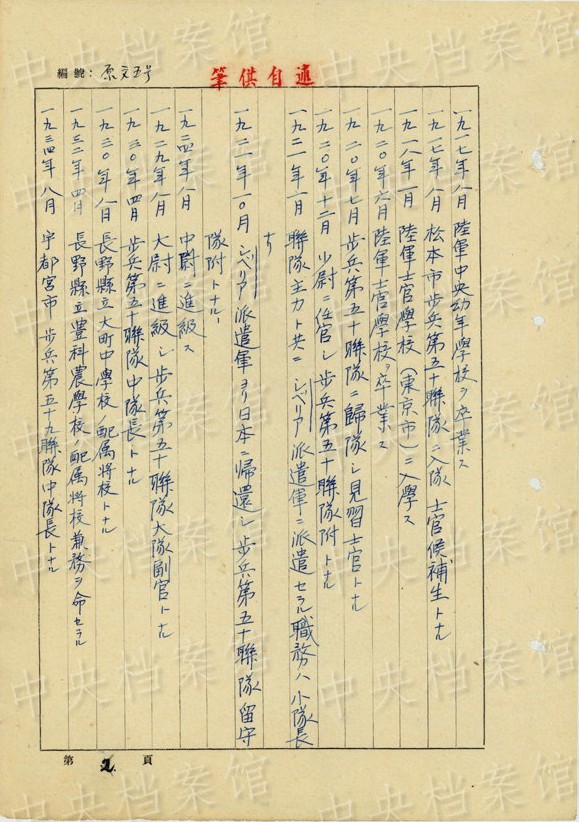 編號：原文五号
筆供自述
一九一七年八月　陸軍中央幼年學校ヲ卒業ス
一九一七年八月　松本市歩兵第五十聯隊ニ入隊　士官候補生トナル
一九一八年一月　陸軍士官學校（東京市）ニ入學ス
一九二〇年六月　陸軍士官學校ヲ卒業ス
一九二〇年七月　歩兵第五十聯隊ニ歸隊シ見習士官トナル
一九二〇年十二月　少尉ニ任官シ歩兵第五十聯隊附トナル
一九二一年一月　聯隊主力ト共ニシベリア派遣軍ニ派遣セラル職務ハ小隊長
す
一九二一年一〇月　シベリア派遣軍ヨリ日本ニ帰還シ歩兵第五十聯隊留守
隊附トナル
一九二四年八月　中尉ニ進級ス
一九二九年八月　大尉ニ進級シ歩兵第五十聯隊大隊副官トナル
一九三〇年四月　歩兵第五十聯隊中隊長トナル
一九三〇年八月　長野縣立大町中學校ノ配属将校トナル
一九三二年四月　長野縣立豊科農學校ノ配属将校兼務ヲ命セラル
一九三四年八月　宇都宮市歩兵第五十九聯隊中隊長トナル
第2頁
中央档案馆